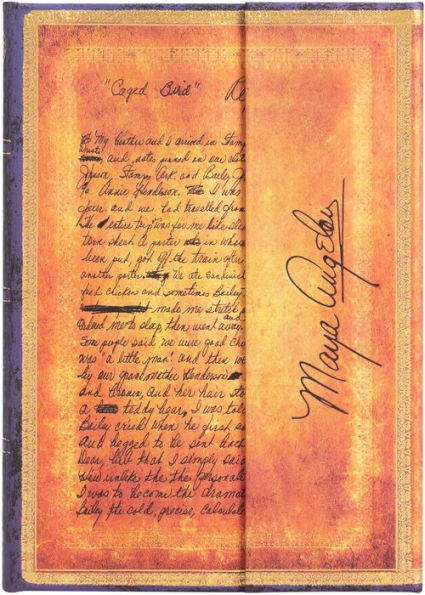 "Caged Bird" Re
My brother and I arrived in Stam
and notes pinned on our clot
Johnson, Stamps, Ark. and Bailey J
To Annie Henderson. I was
and we had travelled from
entire trip
a porter in whose
been put, got off the train after
another porter. We ate sandwich
fried chicken and sometimes Bailey
made me stretch
me to sleep, then went away.
Some people said we were good ch
was "a little man" and then we
by our grandmother Henderson
and her hair sto
a teddy bear, I was told
Bailey cried when he first
and begged to be sent back
Dear, but that I simply said
the personal
I was to become the dramat
Bailey the cold, precise, calculat
Maya Angelou